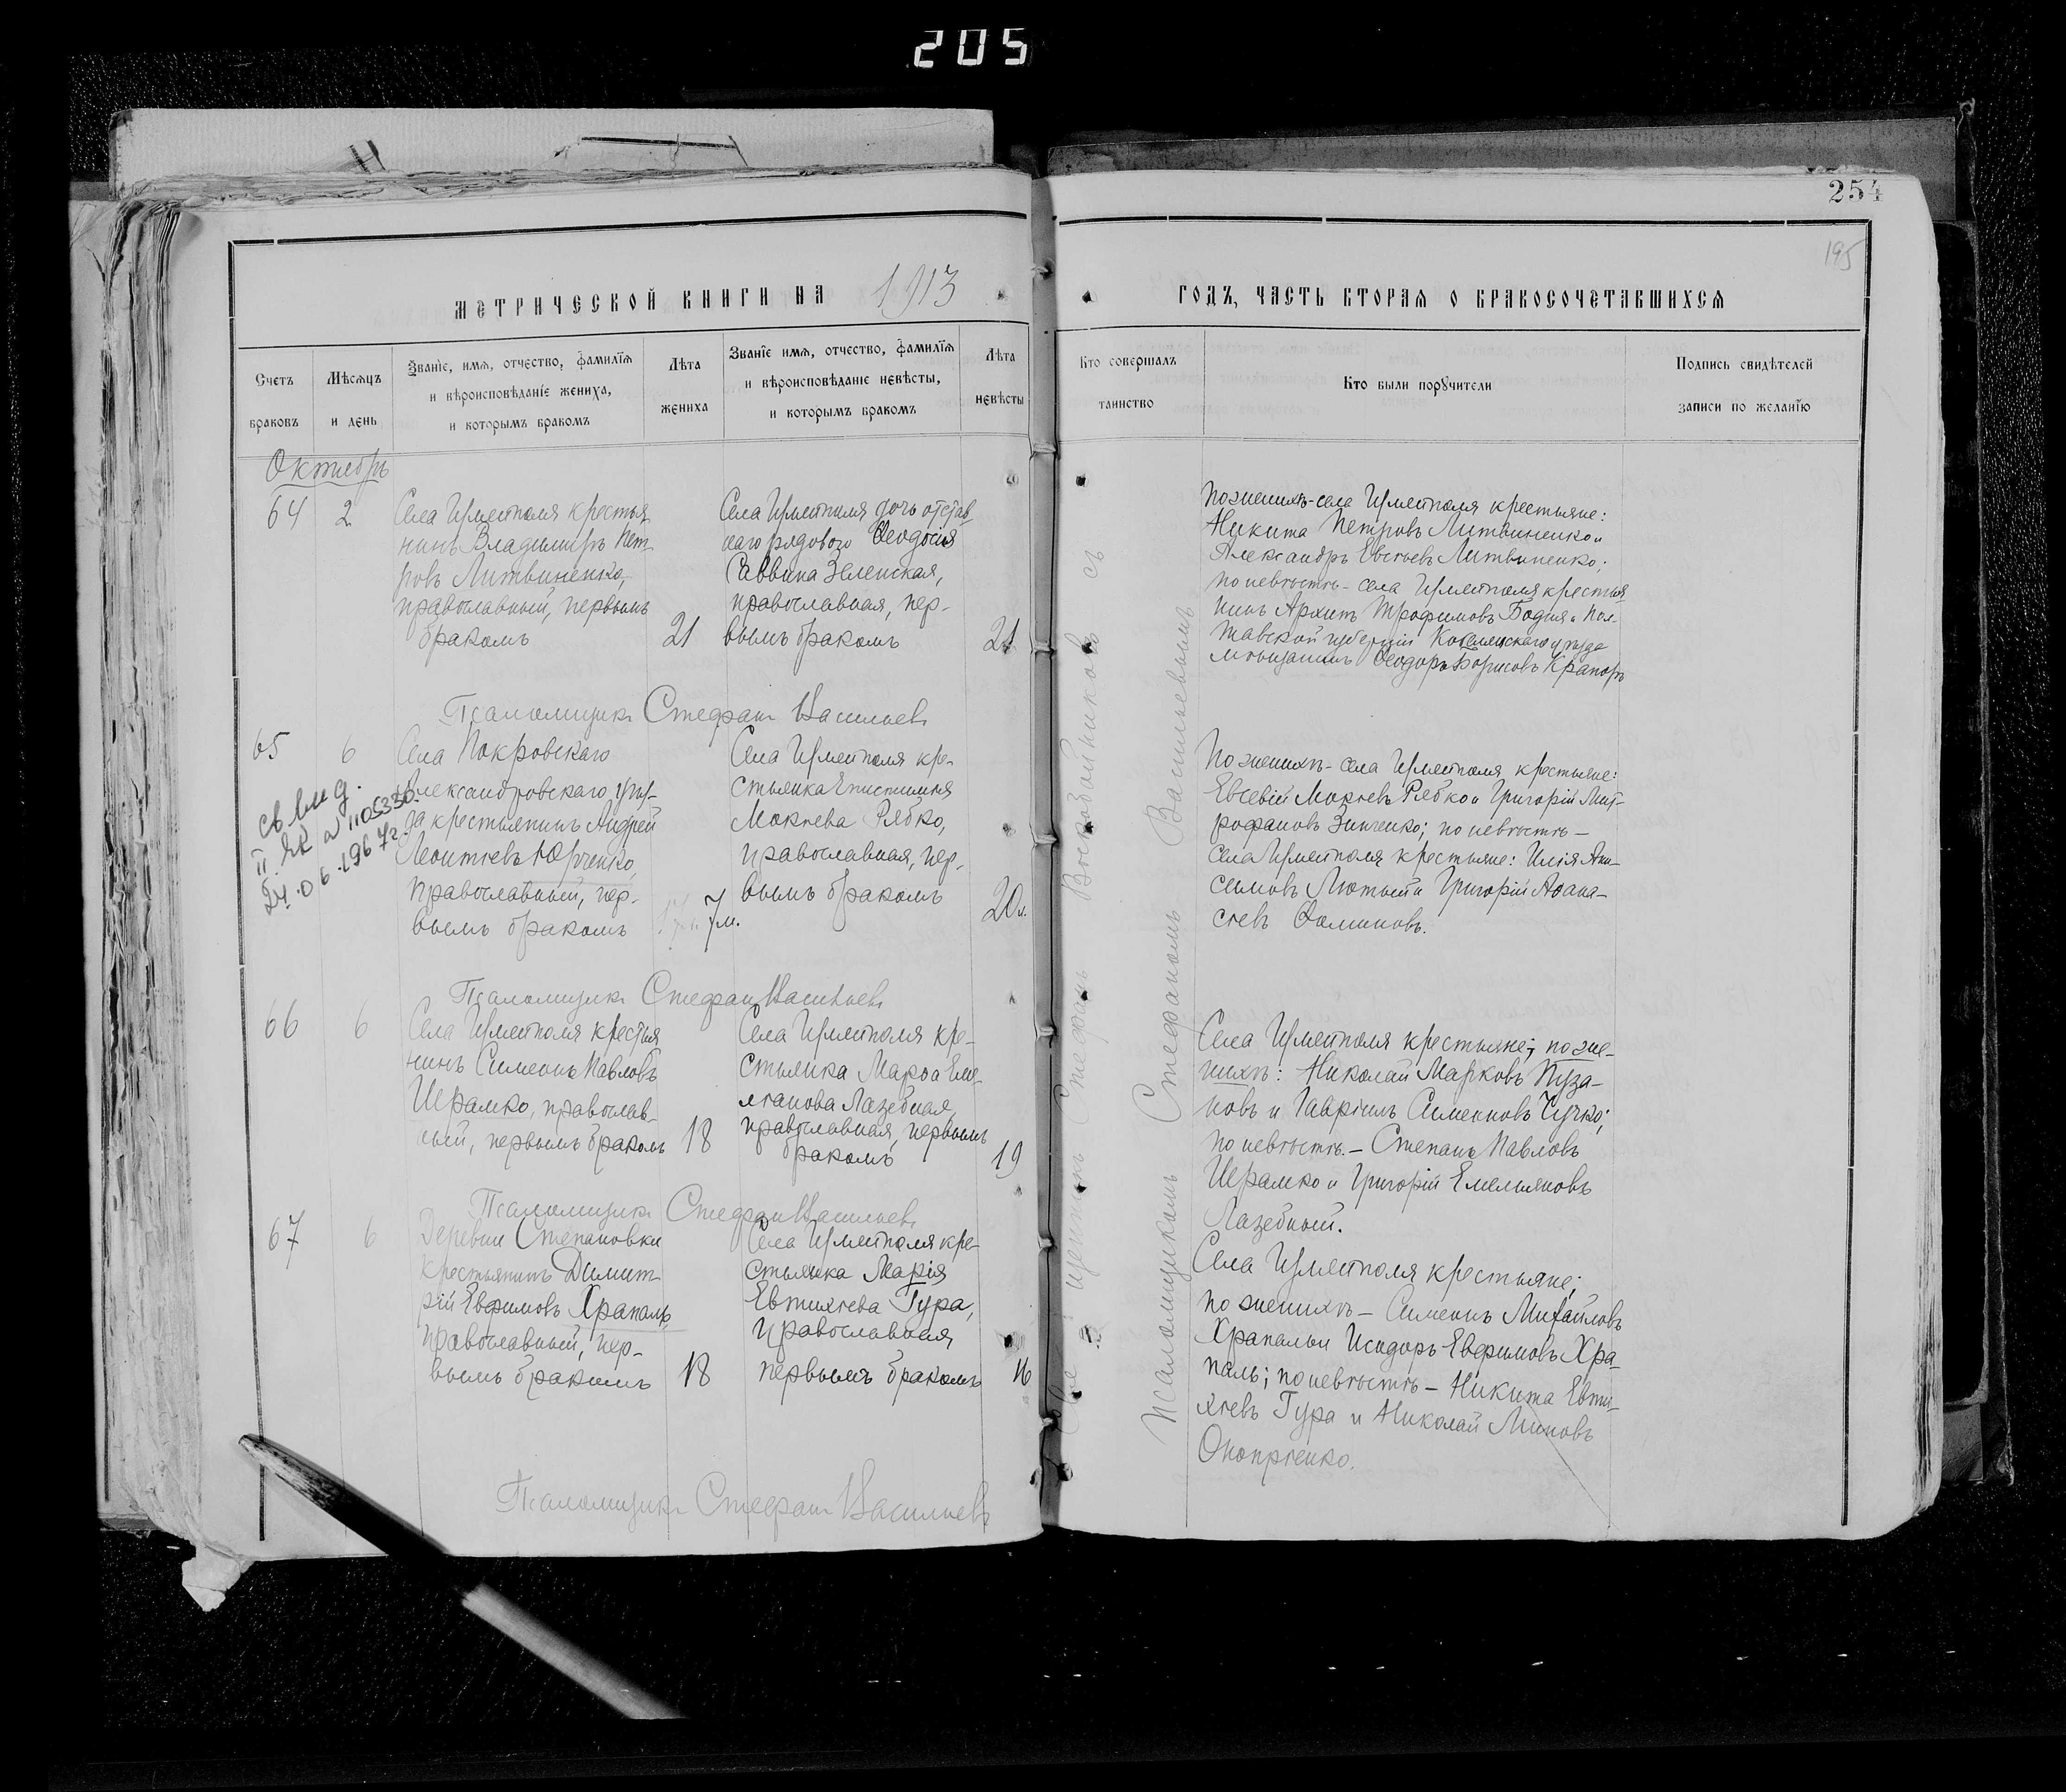 205
254
195
МЕТРИЧЕСКОЙ КНИГИ НА 1913
ГОДЪ, ЧАСТЬ ВТОРАЯ О БРАКОСОЧЕТАВШИХСЯ
Счетъ браковъ
Мѣсяцъ и день
Званіе, имя, отчество, фамилія
и вѣроисповѣданіе жениха,
и которымъ бракомъ
Лѣта жениха
Званіе имя, отчество, фамилія
и вѣроисповѣданіе невѣсты,
и которымъ бракомъ
Лѣта невѣсты
Кто совершалъ таинство
Кто были поручители
Подпись свидѣтелей
записи по желанію
Октябрь
64
2
Села Гуляйполя крестья
нинъ Владимиръ Пет
ровъ Литвиненко,
православный, первымъ
бракомъ
21
Села Гуляйполя дочь отстав
наго рядового Ѳеодосія
Саввина Зеленская,
православная, пер-
вымъ бракомъ
21
По женихѣ - села Гуляйполя крестьяне:
Никита Петровъ Литвиненко и
Александръ Евсѣевъ Литвиненко;
по невѣстѣ - села Гуляйполя крестья
нинъ Архипъ Трофимовъ Бодня и Пол-
тавской губерніи Кобелякскаго уѣзда
мѣщанинъ Ѳеодоръ Борисовъ
Псаломщикъ Стефанъ Васильевъ
65
6
св. выд.
24.06.1967г.
Села Покровскаго
Александровскаго уѣз-
да крестьянинъ Андрей
Леонтіевъ Юрченко,
православный, пер-
вымъ бракомъ
7 м.
Села Гуляйполя кре-
стьянка Епистимія
Мокіева Рябко,
православная, пер-
вымъ бракомъ
20 л.
По женихѣ - села Гуляйполя крестьяне:
Евсевій Мокіевъ Рябко и Григорій Мит-
рофановъ Зинченко; по невѣстѣ -
села Гуляйполя крестьяне: Илія Ани-
симовъ Лютый и Григорій Аѳана-
сіевъ Ѳоминовъ.
Псаломщикъ Стефанъ Васильевъ
66
6
Села Гуляйполя крестья
нинъ Симеонъ Павловъ
Шрамко, православ-
ный, первымъ бракомъ
18
Села Гуляйполя кре-
стьянка Марѳа Еме-
ліанова Лазебная,
православная, первымъ
бракомъ
19
Села Гуляйполя крестьяне; по же-
нихѣ: Николай Марковъ Пуза-
новъ и Гавріилъ Симеоновъ Чучко;
по невѣстѣ - Степанъ Павловъ
Шрамко и Григорій Емельяновъ
Лазебный.
Псаломщикъ Стефанъ Васильевъ
67
6
Деревни Степановки
крестьянинъ Димит
рій Евфимовъ Храпаль,
православный, пер-
вымъ бракомъ
18
Села Гуляйполя кре-
стьянка Марія
Евтихіева Гура,
православная
первымъ бракомъ
16
Села Гуляйполя крестьяне;
по женихѣ - Симеонъ Михайловъ
Храпаль и Исидоръ Евфимовъ Хра-
паль; по невѣстѣ - Никита Евти-
хіевъ Гура и Николай Миновъ
Онопріенко.
Псаломщикъ Стефанъ Васильевъ
Священникъ Стефанъ Воскобойниковъ съ
псаломщикомъ Стефаномъ Васильевымъ